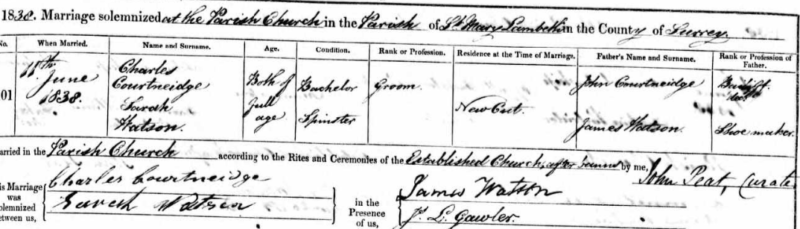 1838. Marriage solemnized at the Parish Church in the Parish of St Mary Lambeth in the County of Surrey
No. When Married. Name and Surname. Age. Condition. Rank or Profession. Residence at the Time of Marriage. Father's Name and Surname. Rank or Profession of Father.
01 11th June 1838. Charles Courtneidge Both of full age Bachelor Groom. New Cut. John Courtneidge
Sarah Watson. Spinster James Watson. Shoe maker.
arried in the Parish Church according to the Rites and Ceremonies of the Established Church, after banns by me, John Peat, Curate
is Marriage was solemnized between us, Charles Courtneidge Sarah Watson in the Presence of us, James Watson J. L. Gawler.